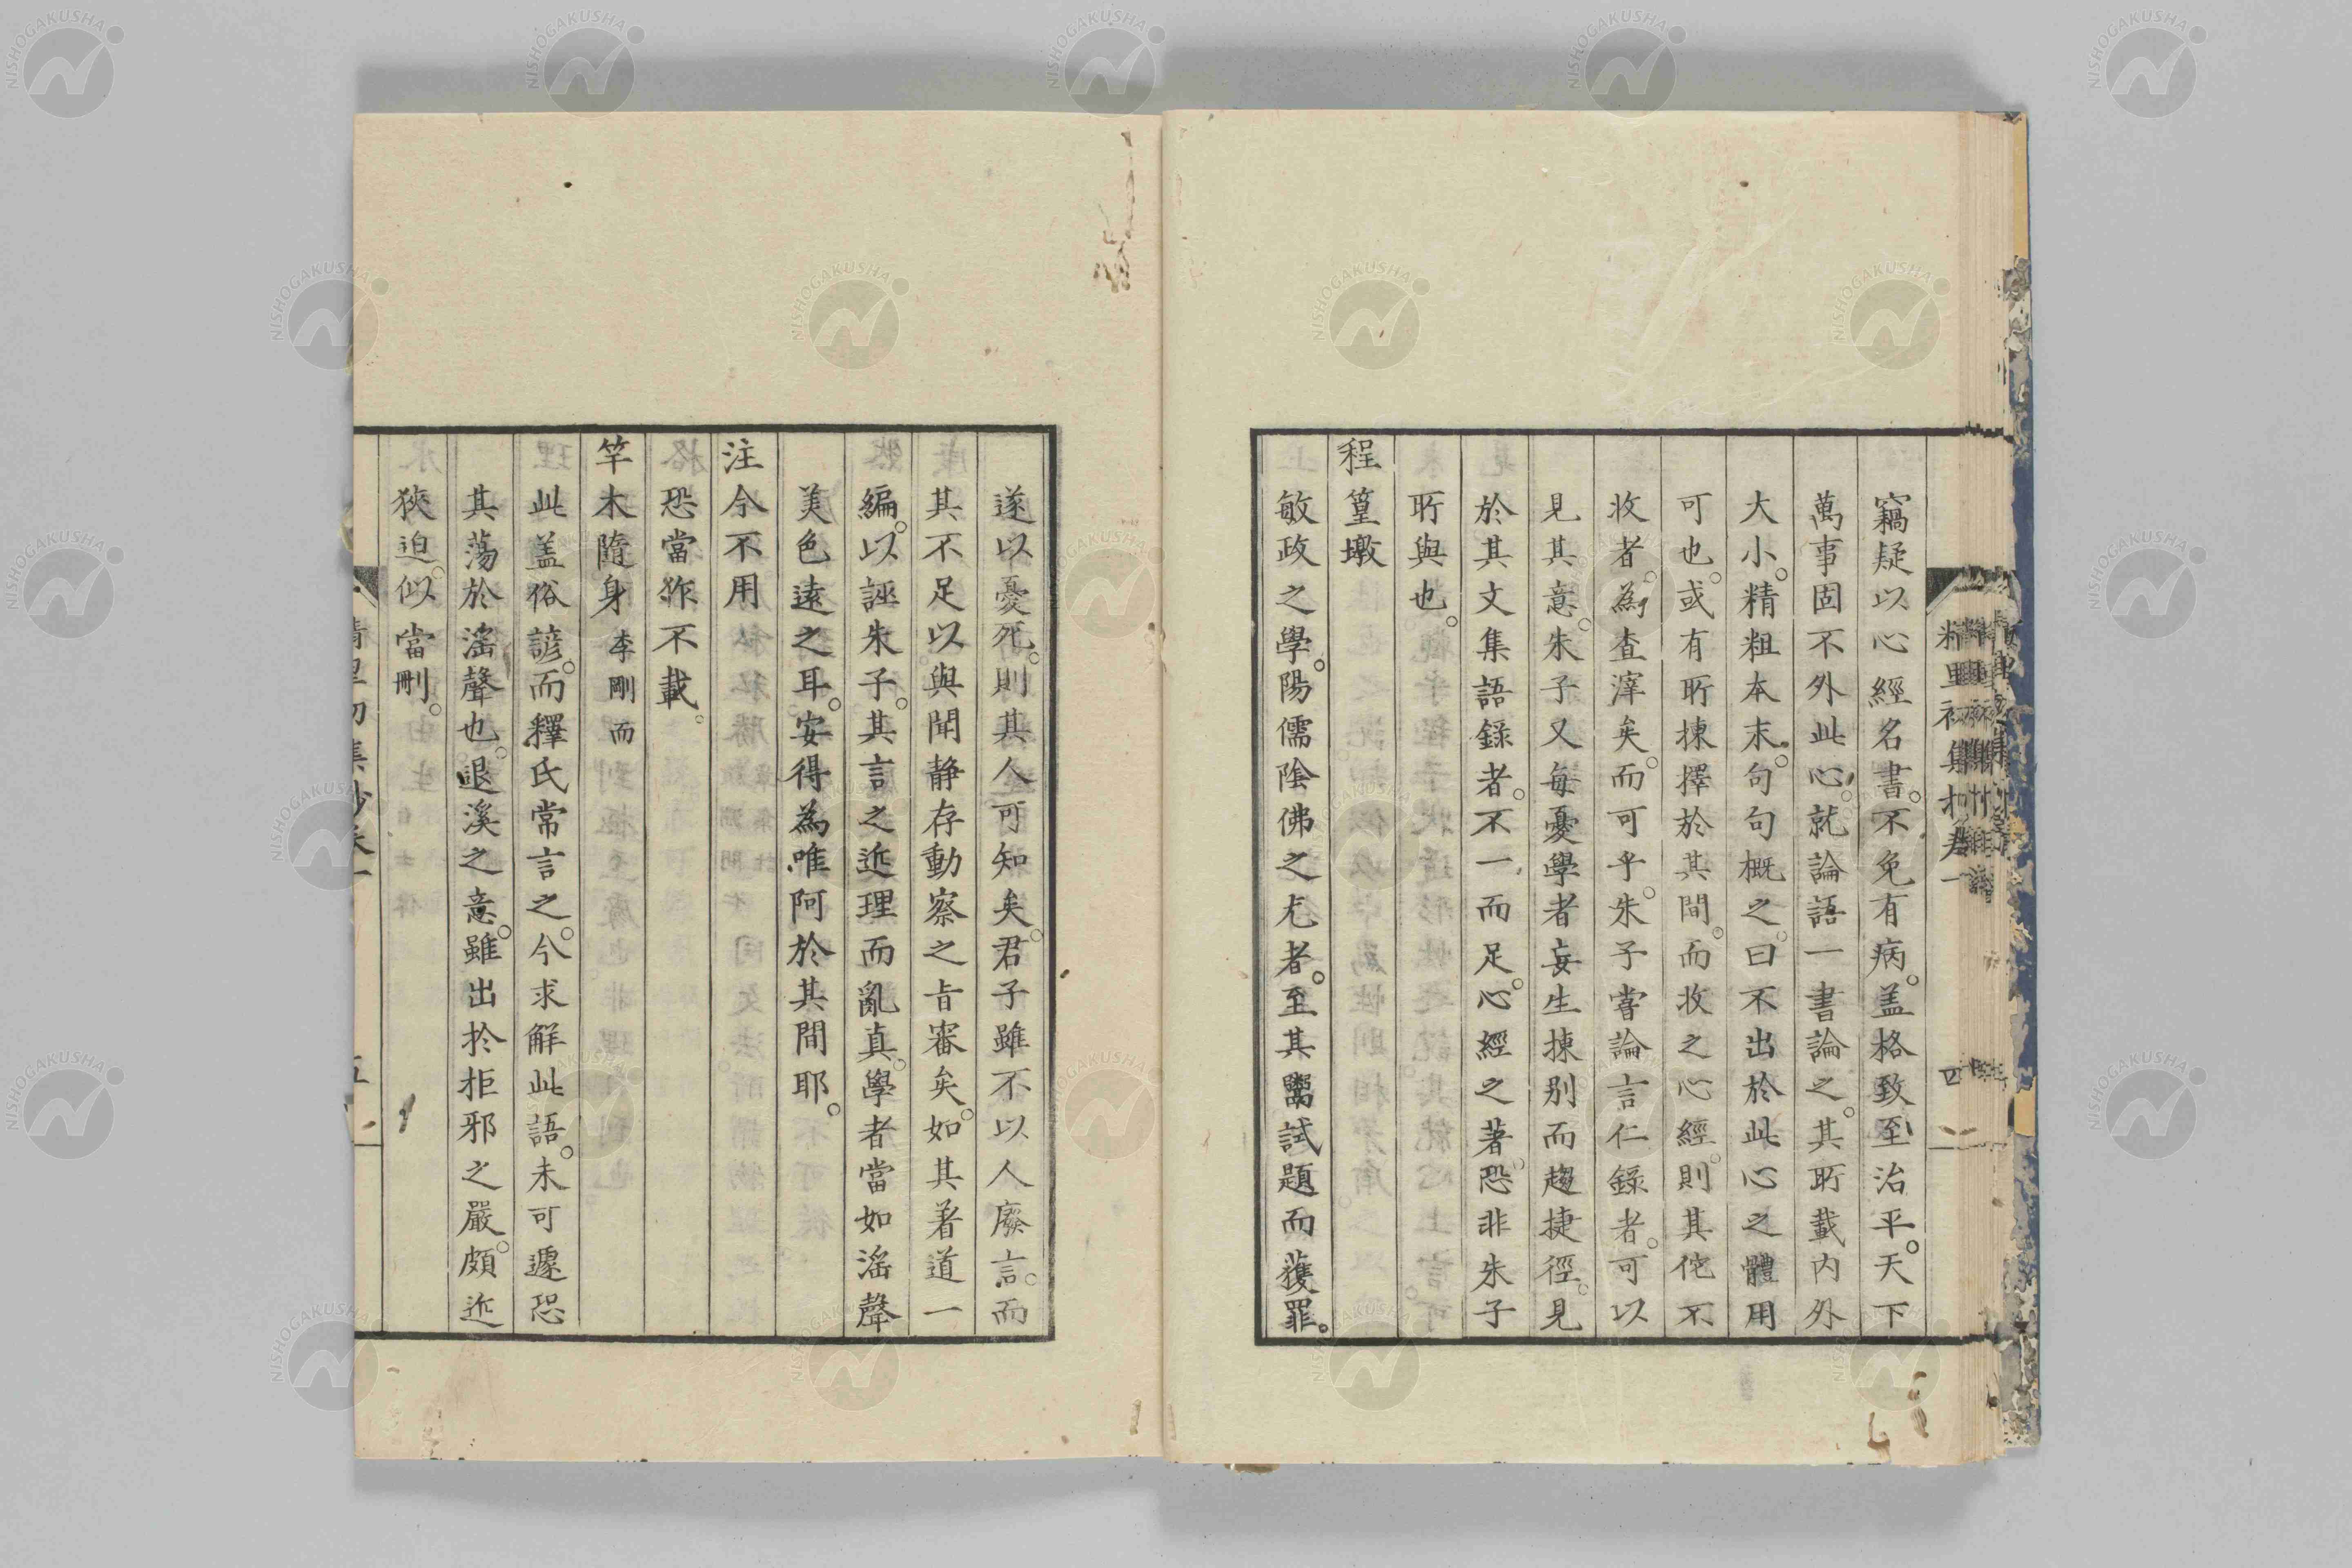 竊疑以心經名書。不免有病。盖格致至治平。天下
萬事固不外此心。就論語一書論之。其所載内外
大小。精粗本末。句句概之。曰不出於此心之體用
可也。或有所揀擇於其間。而收之心經。則其佗不
收者。為査滓矣。而可乎。朱子嘗論言仁錄者。可以
見其意。朱子又每憂學者妄生揀別而趨捷徑。見
於其文集語錄者。不一而足。心經之著。恐非朱子
所與也。
程篁墩
敏政之學。陽儒陰佛之尤者。至其鬻試題而獲罪。
遂以憂死。則其人可知矣。君子雖不以人廢言。而
其不足以與聞靜存動察之旨審矣。如其著道一
編。以誣朱子。其言之近理而亂真。學者當如滛聲
美色遠之耳。安得為唯阿於其間耶。
注今不用
恐當作不載。
竿木隨身 李剛而
此盖俗諺。而釋氏常言之。今求解此語。未可遽恐
其蕩於滛聲也。退溪之意。雖出於拒邪之嚴。頗近
狹迫。似當刪。
NISHOGAKUSHA